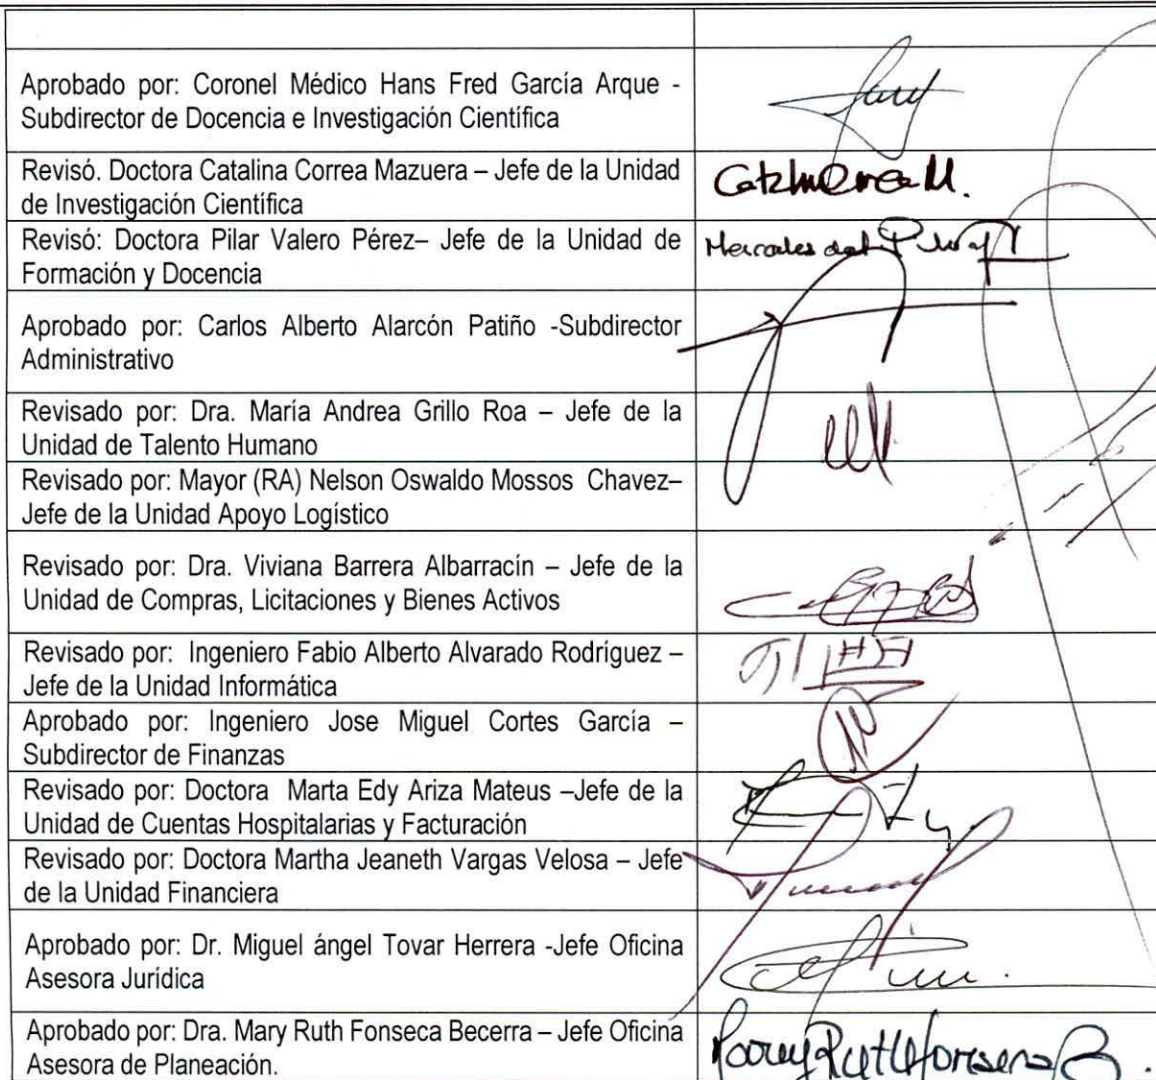 Aprobado por: Coronel Médico Hans Fred García Arque -
Subdirector de Docencia e Investigación Científica
Revisó. Doctora Catalina Correa Mazuera – Jefe de la Unidad
de Investigación Científica
Revisó: Doctora Pilar Valero Pérez– Jefe de la Unidad de
Formación y Docencia
Aprobado por: Carlos Alberto Alarcón Patiño -Subdirector
Administrativo
Revisado por: Dra. María Andrea Grillo Roa – Jefe de la
Unidad de Talento Humano
Revisado por: Mayor (RA) Nelson Oswaldo Mossos Chavez–
Jefe de la Unidad Apoyo Logístico
Revisado por: Dra. Viviana Barrera Albarracín – Jefe de la
Unidad de Compras, Licitaciones y Bienes Activos
Revisado por: Ingeniero Fabio Alberto Alvarado Rodríguez –
Jefe de la Unidad Informática
Aprobado por: Ingeniero Jose Miguel Cortes García –
Subdirector de Finanzas
Revisado por: Doctora Marta Edy Ariza Mateus –Jefe de la
Unidad de Cuentas Hospitalarias y Facturación
Revisado por: Doctora Martha Jeaneth Vargas Velosa – Jefe
de la Unidad Financiera
Aprobado por: Dr. Miguel ángel Tovar Herrera -Jefe Oficina
Asesora Jurídica
Aprobado por: Dra. Mary Ruth Fonseca Becerra – Jefe Oficina
Asesora de Planeación.